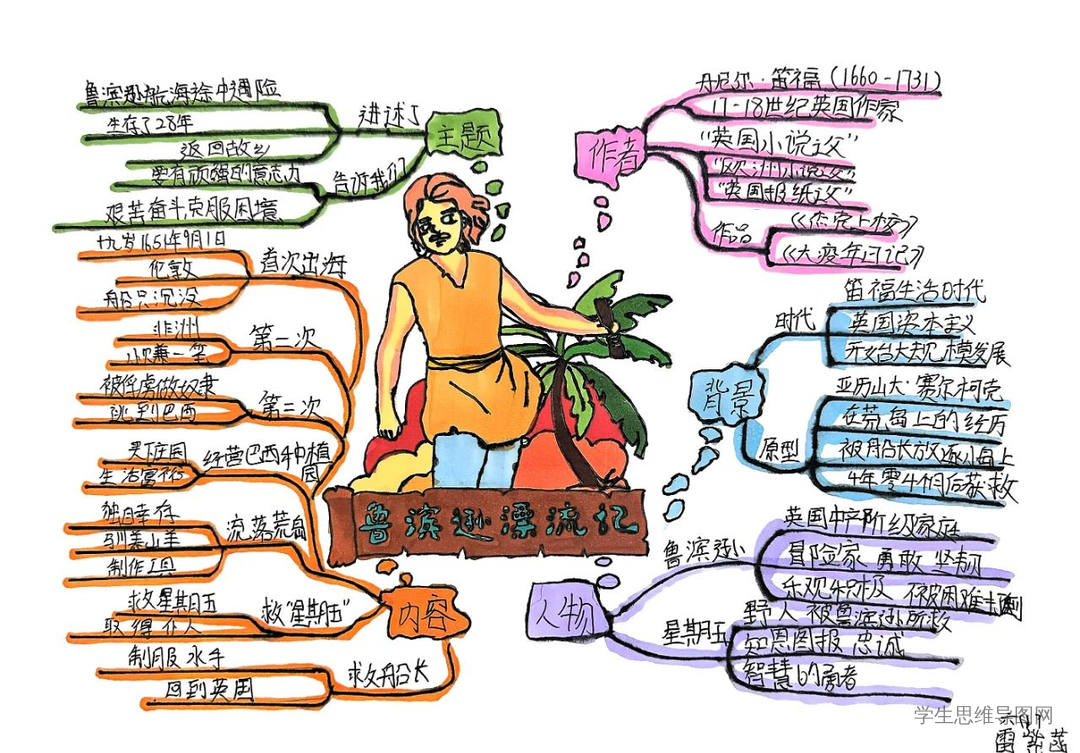 主题
讲述了
鲁滨逊航海途中遇险
生存了28年
返回故乡
告诉我们
要有顽强的意志力
艰苦奋斗克服困境
作者
丹尼尔·笛福（1660-1731）
17-18世纪英国作家
“英国小说之父”
“欧洲小说之父”
“英国报纸之父”
作品
《杰克上校》
《大疫年日记》
背景
时代
笛福生活时代
英国资本主义
开始大规模发展
原型
亚历山大·赛尔柯克
在荒岛上的经历
被船长放逐小岛上
4年零4个月后获救
人物
鲁滨逊
英国中产阶级家庭
冒险家 勇敢 坚韧
乐观积极 不被困难
星期五
野人 被鲁滨逊所救
知恩图报 忠诚
智慧的勇者
鲁滨逊漂流记
内容
首次出海
十九岁1651年9月1日
伦敦
船只沉没
第二次
非洲
小赚一笔
第三次
被俘虏做奴隶
逃到巴西
经营巴西种植园
买庄园
生活富裕
流落荒岛
独自幸存
驯养山羊
制作工具
救“星期五”
救星期五
取得仆人
救船长
制服水手
回到英国
学生思维导图网